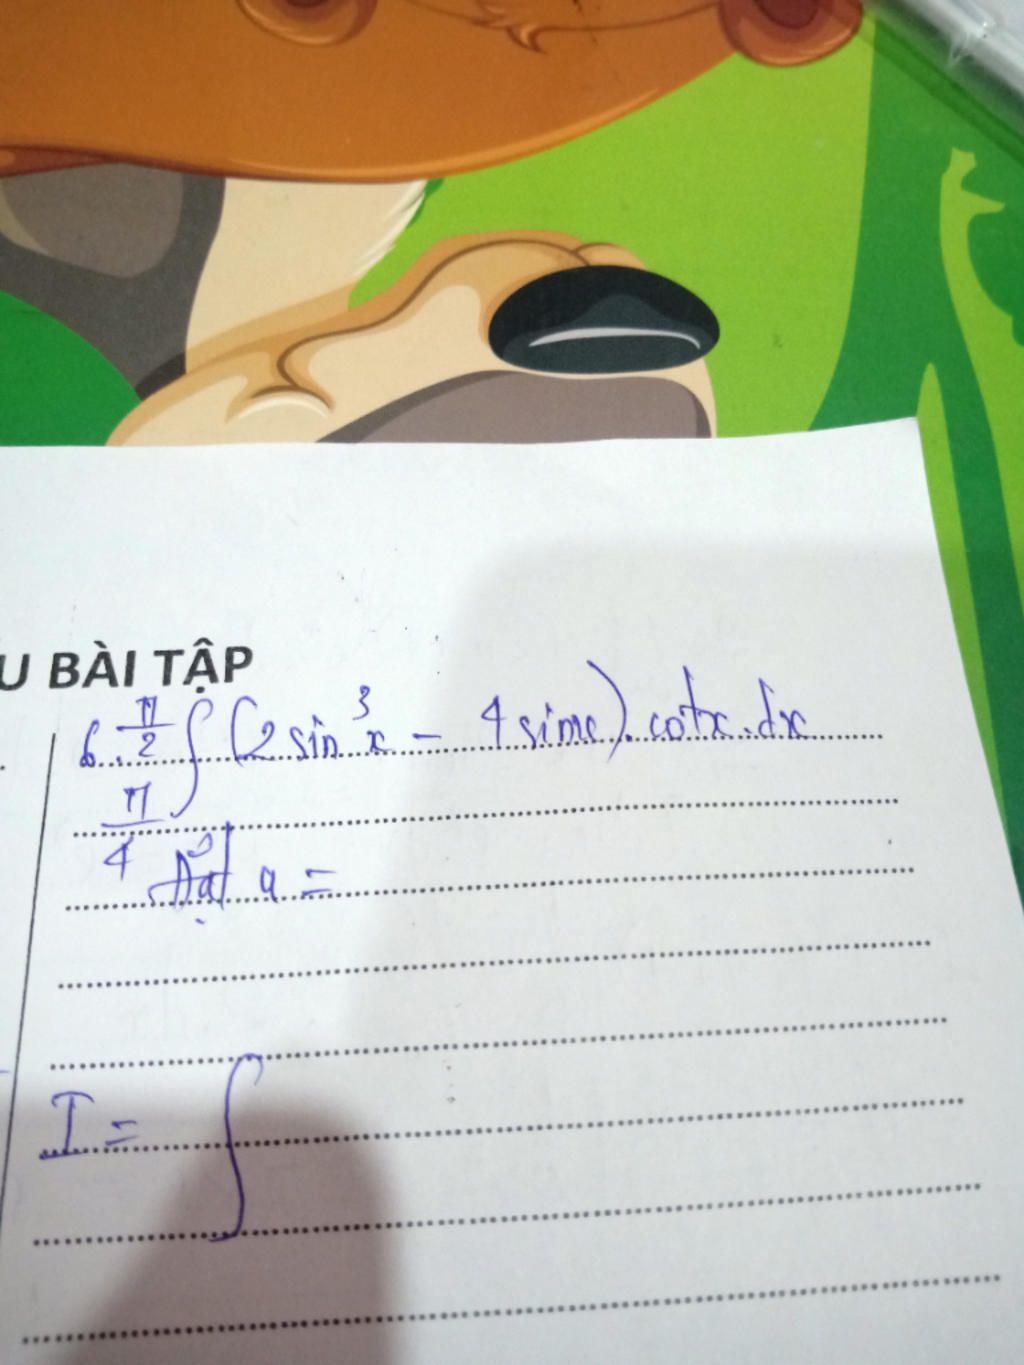 U BÀI TẬP
6. π/2 ∫ (2 sin³x - 4 sinx). cotx. dx
π/4
Đặt u =
I = ∫